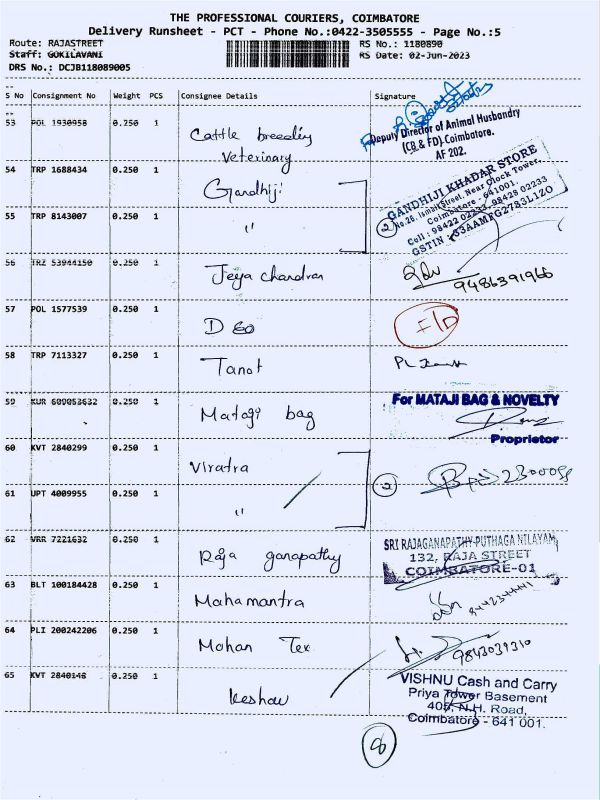 THE PROFESSIONAL COURIERS, COIMBATORE
Delivery Runsheet - PCT - Phone No.:0422-3505555 - Page No.:5
Route: RAJASTREET RS No.: 1180890
Staff: GOKILAVANI RS Date: 02-Jun-2023
DRS No.: DCJB118089005
S No Consignment No Weight PCS Consignee Details Signature
53 POL 1930958 0.250 1 Cattle breeding
Veterinary
Deputy Director of Animal Husbandry
(CB & FD) Coimbatore.
AF 202.
54 TRP 1688434 0.250 1 Gandhiji
55 TRP 8143007 0.250 1 "
2
GANDHIJI KHADAR STORE
No.26, Ismail Street, Near Clock Tower,
Coimbatore - 641001.
Cell : 98422 02233, 98428 02233
GSTIN : 33AAMFG2783L1ZO
56 TRZ 53944150 0.250 1 Jeya chandran 9486391966
57 POL 1577539 0.250 1 D
58 TRP 7113327 0.250 1 Tanot
59 KUR 609053632 0.250 1 Mataji bag
For MATAJI BAG & NOVELTY
Proprietor
60 KVT 2840299 0.250 1 Viratra
61 UPT 4009955 0.250 1 "
2
62 VRR 7221632 0.250 1 Raja ganapathy
SRI RAJAGANAPATHY PUTHAGA NILAYAM
132, RAJA STREET
COIMBATORE-01
63 BLT 100184428 0.250 1 Mahamantra
64 PLI 200242206 0.250 1 Mohan Tex 9843039310
65 KVT 2840148 0.250 1 Keshav
VISHNU Cash and Carry
Priya Tower Basement
405, N.H. Road,
Coimbatore - 641 001.
8